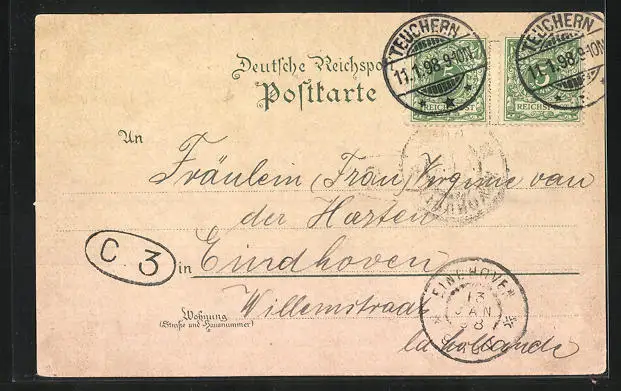 Deutsche Reichspost
Postkarte
TEUCHERN
11.1.98.9-10N.
TEUCHERN
11.1.98.9-10N.
REICHSPOST
REICHSPOST
An
Fräulein (Frau) Virginie van
der Harten
C. 3
in Eindhoven
EINDHOVEN
13
JAN
98
Willemstraat
Wohnung
(Straße und Hausnummer)
la hollande